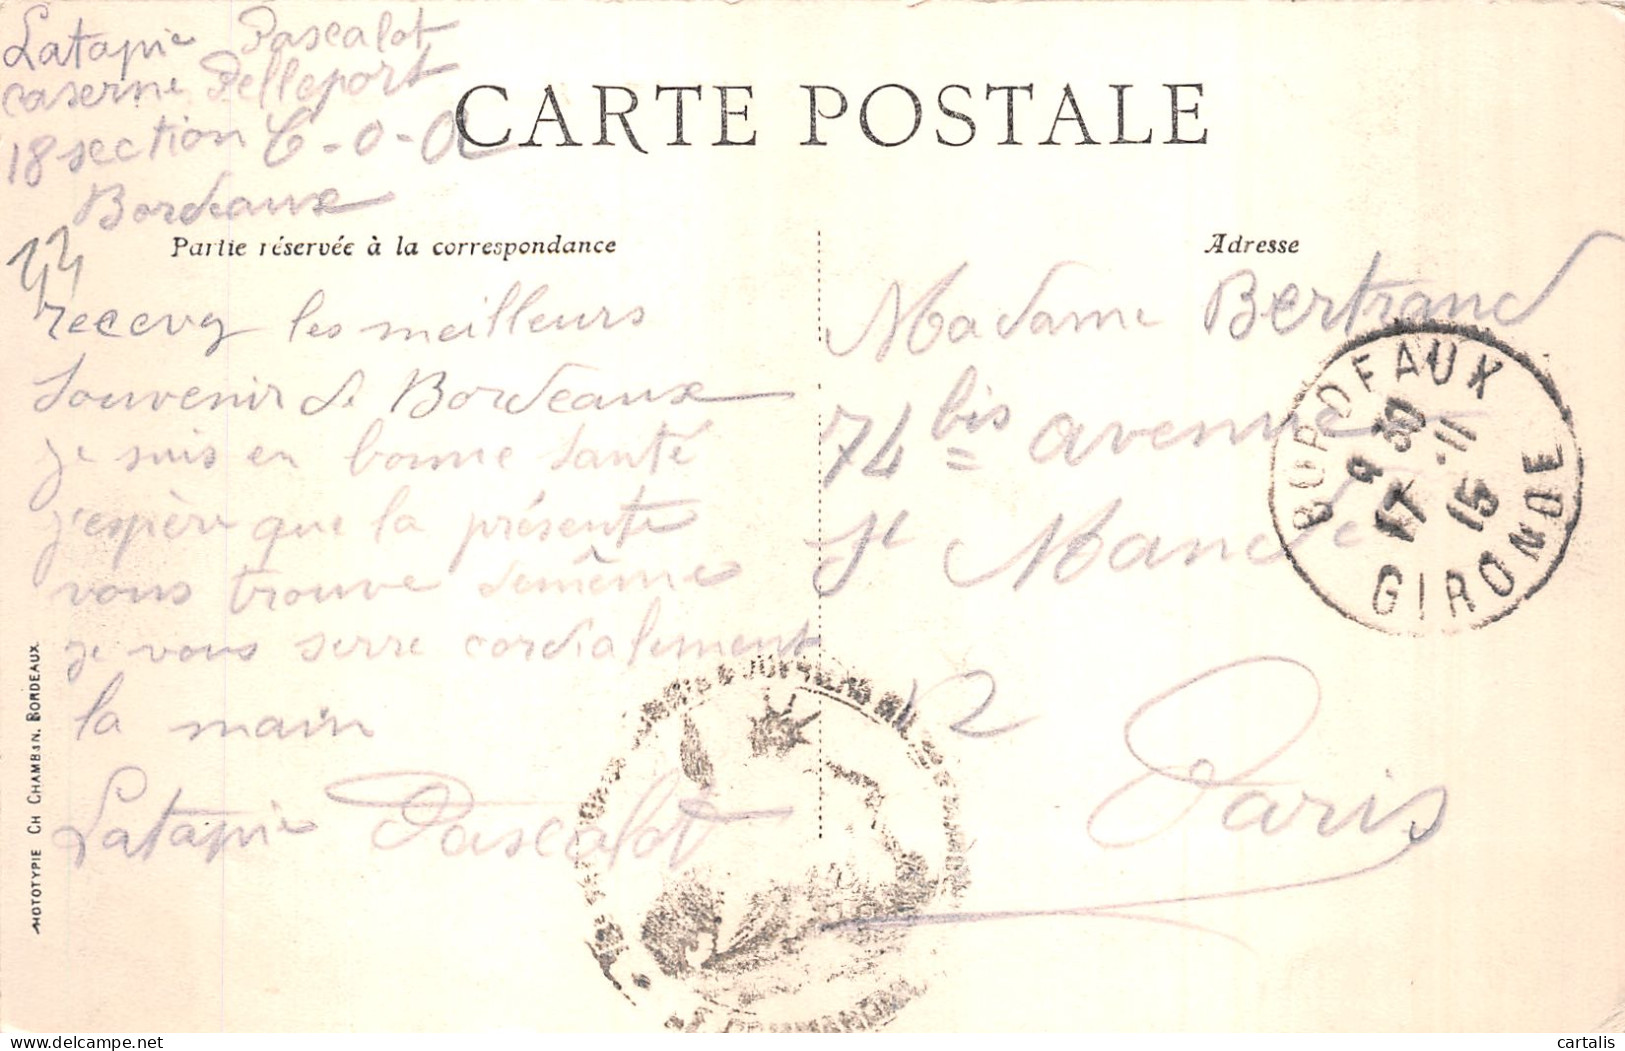 Latapie Pascalot
caserne Pelleport
18 section C-O-A
Bordeaux
CARTE POSTALE
Partie réservée à la correspondance
Adresse
recevez les meilleurs
souvenir de Bordeaux
je suis en bonne santé
j'espère que la présente
vous trouve demême
je vous serre cordialement
la main
Latapie Pascalot
Madame Bertrand
74 bis avenue
St Mandé
12
Paris
BORDEAUX
9 30
17 -11
15
GIRONDE
MOTOTYPIE CH CHAMBON. BORDEAUX
delcampe.net
cartalis